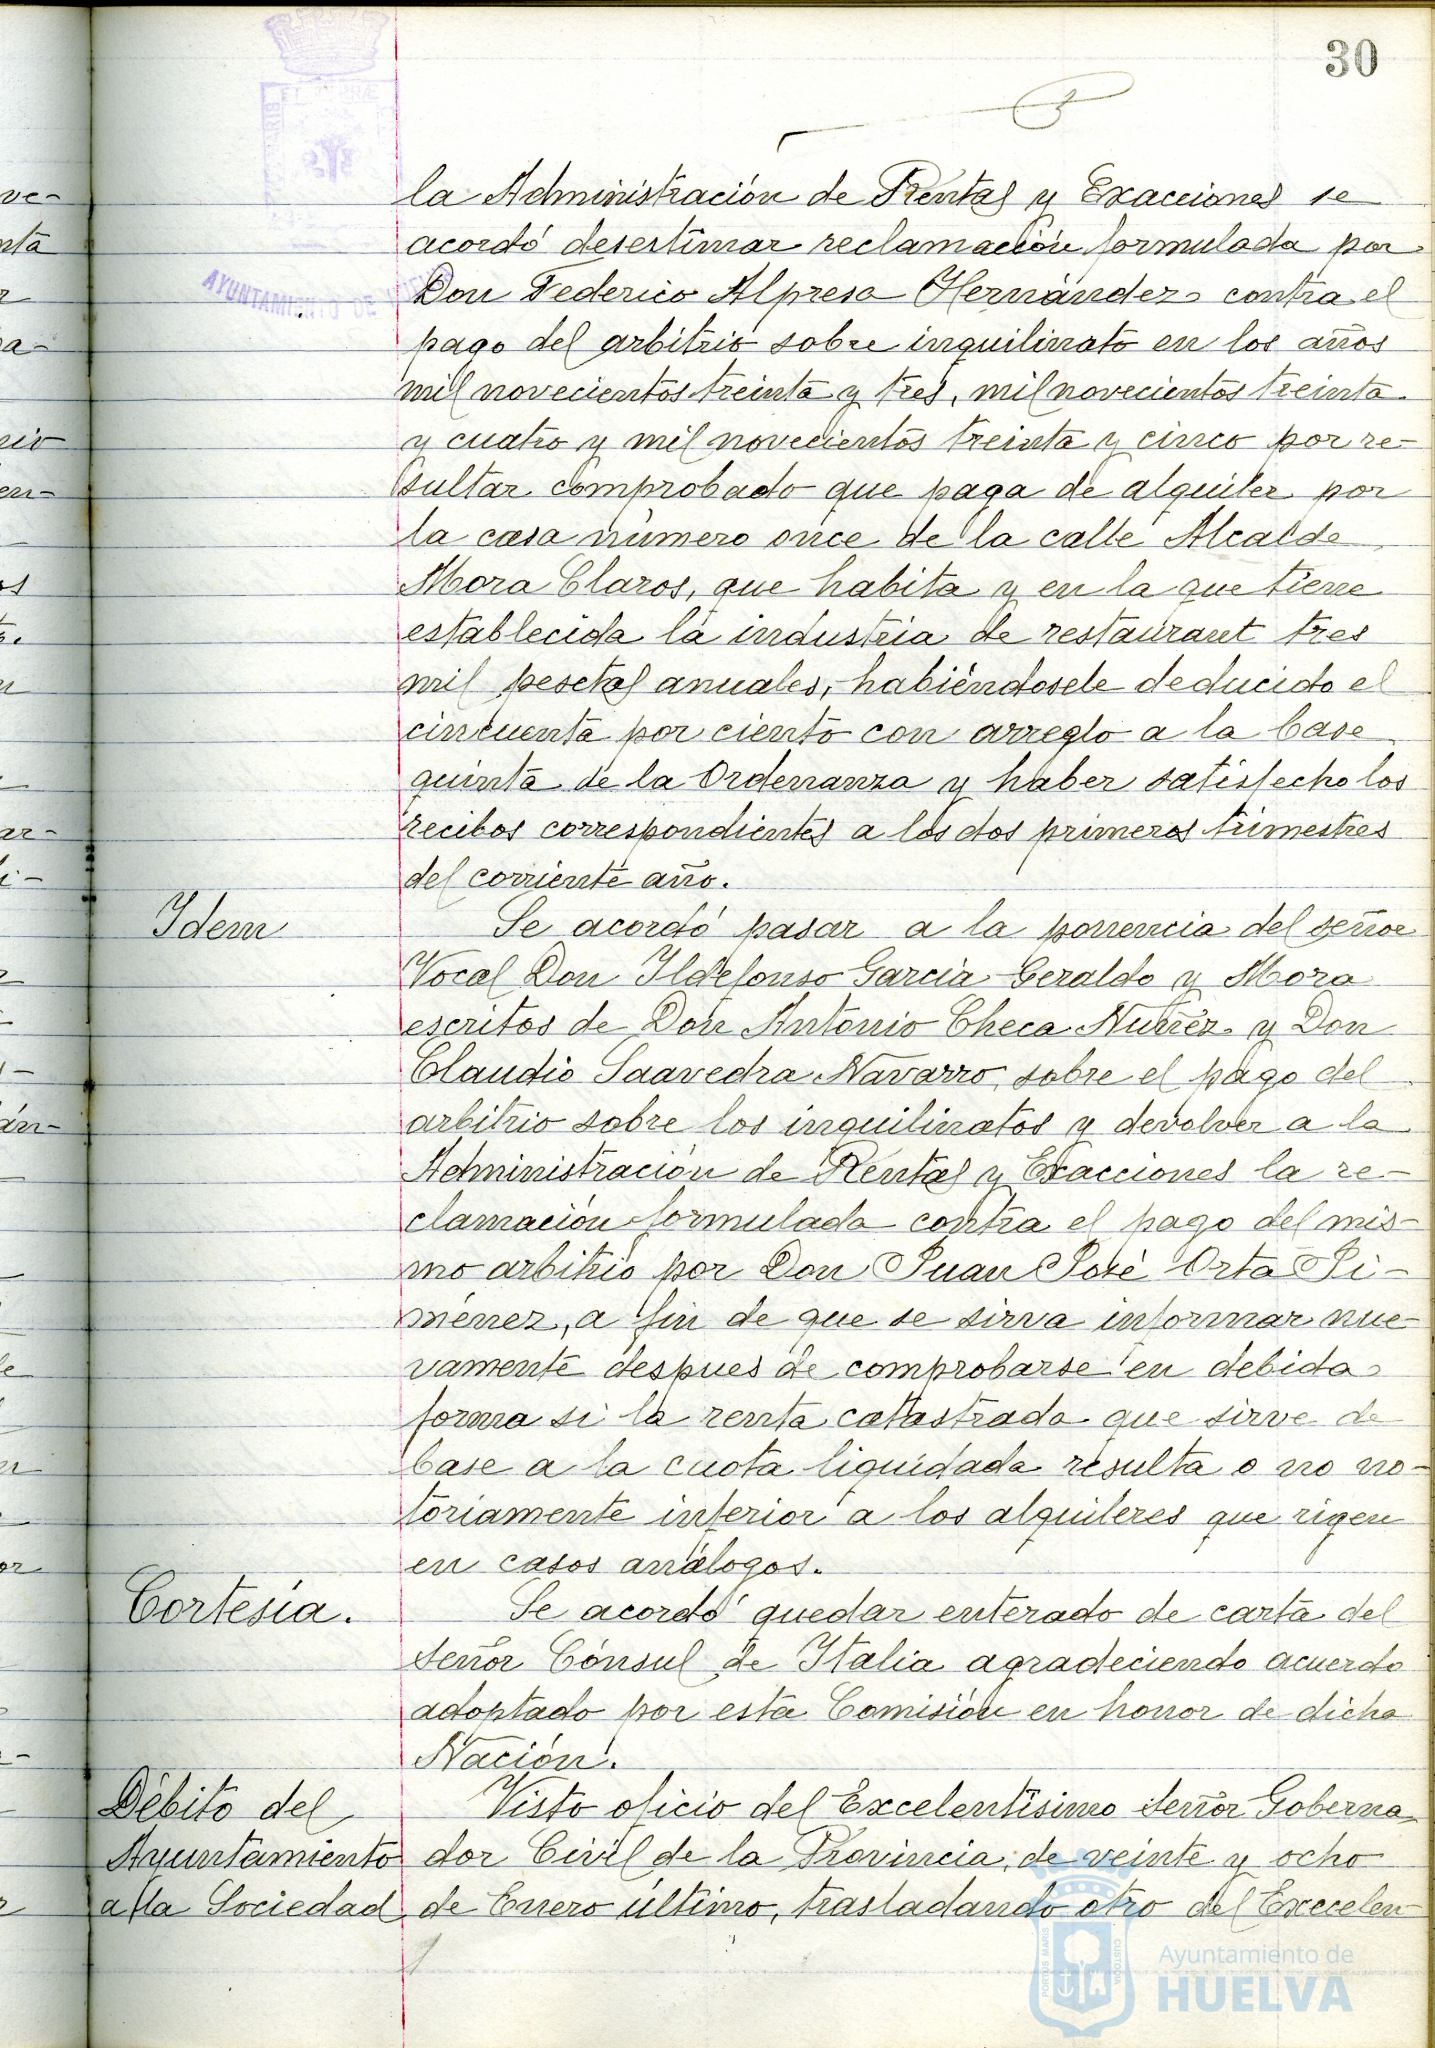 30
la Administración de Rentas y Exacciones se
acordó desestimar reclamación formulada por
Don Federico Alpresa Hernández contra el
pago del arbitrio sobre inquilinato en los años
mil novecientos treinta y tres, mil novecientos treinta
y cuatro y mil novecientos treinta y cinco por re-
sultar comprobado que paga de alquiler por
la casa número once de la calle Alcalde
Mora Claros, que habita y en la que tiene
establecida la industria de restaurant tres
mil pesetas anuales, habiéndosele deducido el
cincuenta por ciento con arreglo a la base
quinta de la Ordenanza y haber satisfecho los
recibos correspondientes a los dos primeros trimestres
del corriente año.
Idem
Se acordó pasar a la ponencia del señor
Vocal Don Ildefonso García Geraldo y Mora
escritos de Don Antonio Checa Nuñez y Don
Claudio Saavedra Navarro, sobre el pago del
arbitrio sobre los inquilinatos y devolver a la
Administración de Rentas y Exacciones la re-
clamación formulada contra el pago del mis-
mo arbitrio por Don Juan José Orta Ji-
ménez, a fin de que se sirva informar nue-
vamente despues de comprobarse en debida
forma si la renta catastrada que sirve de
base a la cuota liquidada resulta o no no-
toriamente inferior a los alquileres que rigen
en casos análogos.
Cortesía.
Se acordó quedar enterado de carta del
señor Cónsul de Italia agradeciendo acuerdo
adoptado por esta Comisión en honor de dicha
Nación.
Débito del
Ayuntamiento
a la Sociedad
Visto oficio del Excelentísimo Señor Goberna-
dor Civil de la Provincia, de veinte y ocho
de Enero último, trasladando otro del Excelen-
AYUNTAMIENTO DE
PORTUS MARIS
CUSTODIA
Ayuntamiento de
HUELVA